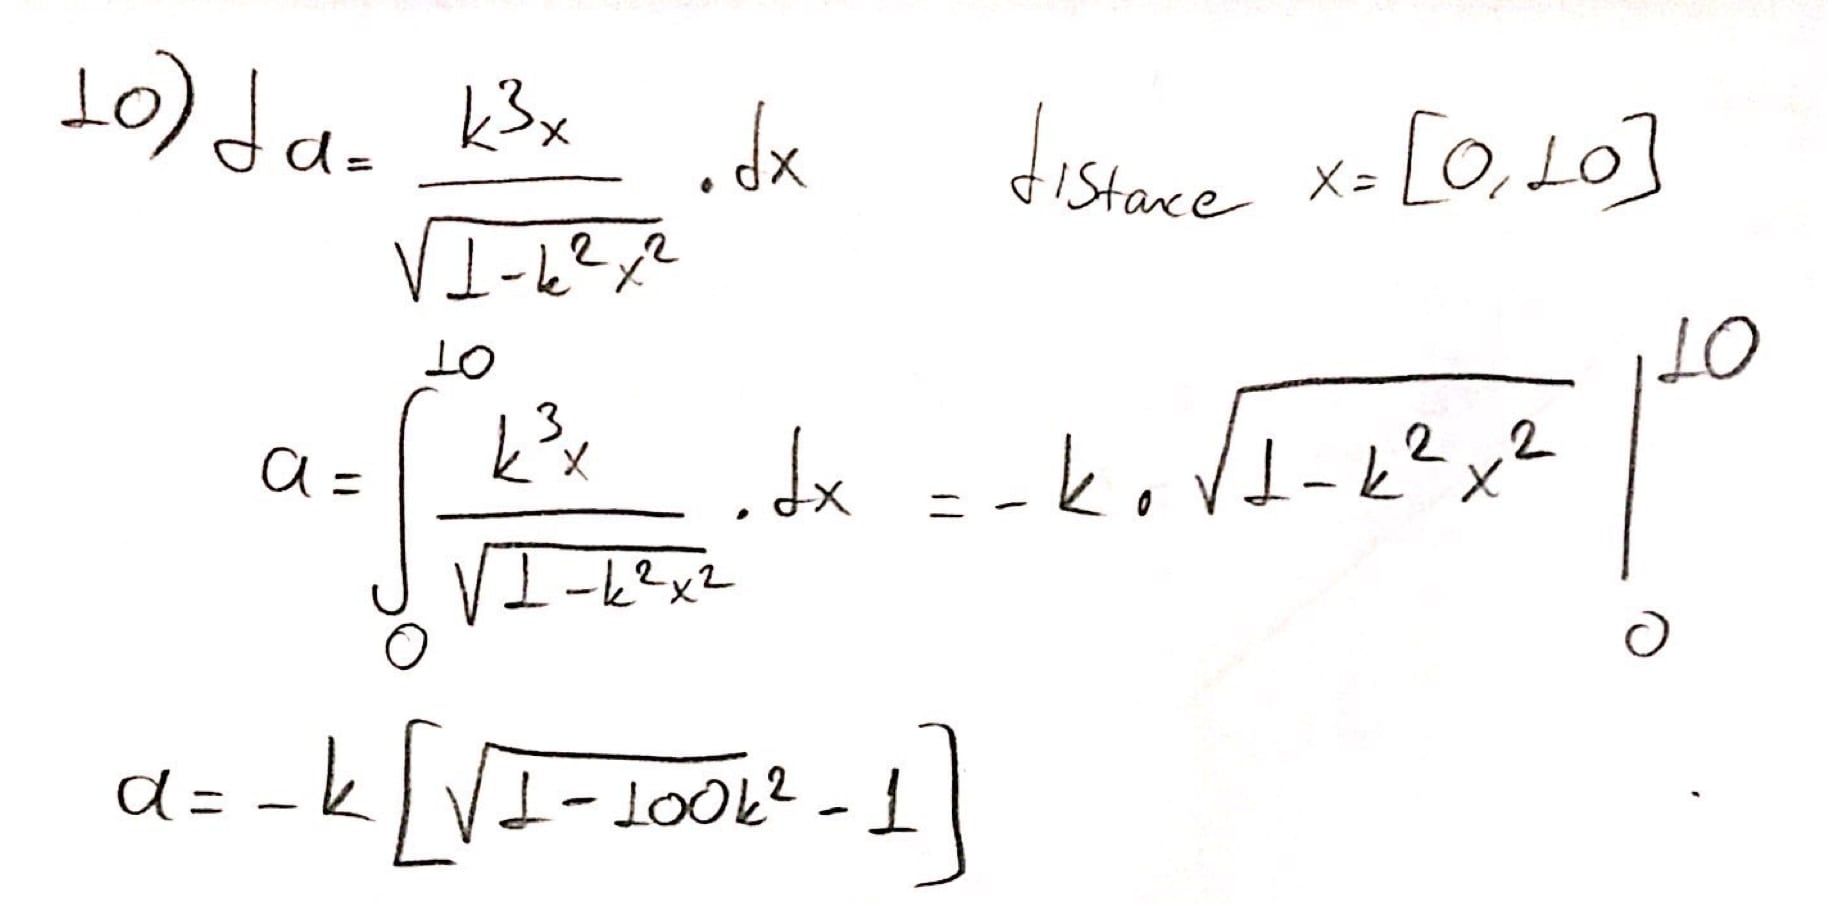 10) da = k³x / √(1-k²x²) . dx distance x = [0,10]
a = ∫₀¹⁰ k³x / √(1-k²x²) . dx = -k . √(1-k²x²) |₀¹⁰
a = -k [√(1-100k²) - 1]